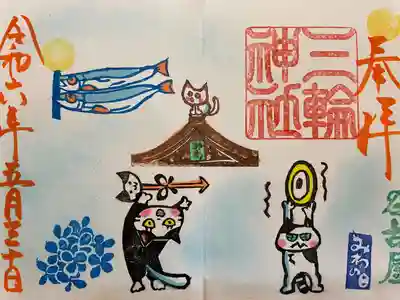 奉拝
名古屋
みわの日
三輪
神社
令和六年五月三十日